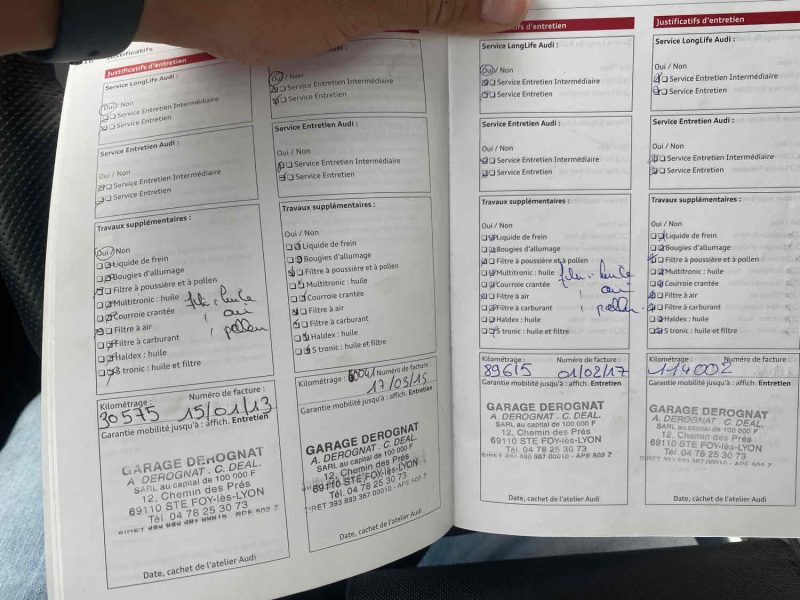 Justificatifs
Justificatifs d'entretien
Service LongLife Audi :
Oui / Non
Service Entretien Intermédiaire
Service Entretien
Service Entretien Audi :
Oui / Non
Service Entretien Intermédiaire
Service Entretien
Travaux supplémentaires :
Oui / Non
Liquide de frein
Bougies d'allumage
Filtre à poussière et à pollen
Multitronic : huile
Courroie crantée
Filtre à air
Filtre à carburant
Haldex : huile
S tronic : huile et filtre
filtre : huile
air
pollen
Kilométrage : Numéro de facture :
30575 15/01/13
Garantie mobilité jusqu'à : affich. Entretien
GARAGE DEROGNAT
A. DEROGNAT . C. DEAL.
SARL au capital de 100 000 F
12, Chemin des Prés
69110 STE FOY-lès-LYON
Tél 04 78 25 30 73
Date, cachet de l'atelier Audi
Oui / Non
Service Entretien Intermédiaire
Service Entretien
Service Entretien Audi :
Oui / Non
Service Entretien Intermédiaire
Service Entretien
Travaux supplémentaires :
Oui / Non
Liquide de frein
Bougies d'allumage
Filtre à poussière et à pollen
Multitronic : huile
Courroie crantée
Filtre à air
Filtre à carburant
Haldex : huile
S tronic : huile et filtre
Kilométrage : Numéro de facture :
60041 17/03/15
Garantie mobilité jusqu'à : affich. Entretien
GARAGE DEROGNAT
A. DEROGNAT . C. DEAL.
SARL au capital de 100 000 F
12, Chemin des Prés
69110 STE FOY-lès-LYON
Tél. 04 78 25 30 73
SIRET 393 893 387 00010 - APE 502 Z
Date, cachet de l'atelier Audi
Justificatifs d'entretien
Service LongLife Audi :
Oui / Non
Service Entretien Intermédiaire
Service Entretien
Service Entretien Audi :
Oui / Non
Service Entretien Intermédiaire
Service Entretien
Travaux supplémentaires :
Oui / Non
Liquide de frein
Bougies d'allumage
Filtre à poussière et à pollen
Multitronic : huile
Courroie crantée
Filtre à air
Filtre à carburant
Haldex : huile
S tronic : huile et filtre
huile
air
pollen
Kilométrage : Numéro de facture :
89615 01/02/17
Garantie mobilité jusqu'à : affich. Entretien
GARAGE DEROGNAT
A. DEROGNAT . C. DEAL.
SARL au capital de 100 000 F
12, Chemin des Prés
69110 STE FOY-lès-LYON
Tél. 04 78 25 30 73
SIRET 393 893 387 00010 - APE 502 Z
Date, cachet de l'atelier Audi
Justificatifs d'entretien
Service LongLife Audi :
Oui / Non
Service Entretien Intermédiaire
Service Entretien
Service Entretien Audi :
Oui / Non
Service Entretien Intermédiaire
Service Entretien
Travaux supplémentaires :
Oui / Non
Liquide de frein
Bougies d'allumage
Filtre à poussière et à pollen
Multitronic : huile
Courroie crantée
Filtre à air
Filtre à carburant
Haldex : huile
S tronic : huile et filtre
Kilométrage : Numéro de facture
114002
Garantie mobilité jusqu'à : affich. Entretien
GARAGE DEROGNAT
A. DEROGNAT . C. DEAL.
SARL au capital de 100 000 F
12, Chemin des Prés
69110 STE FOY-lès-LYON
Tél. 04 78 25 30 73
SIRET 393 893 387 00010 - APE 502 Z
Date, cachet de l'atelier Audi